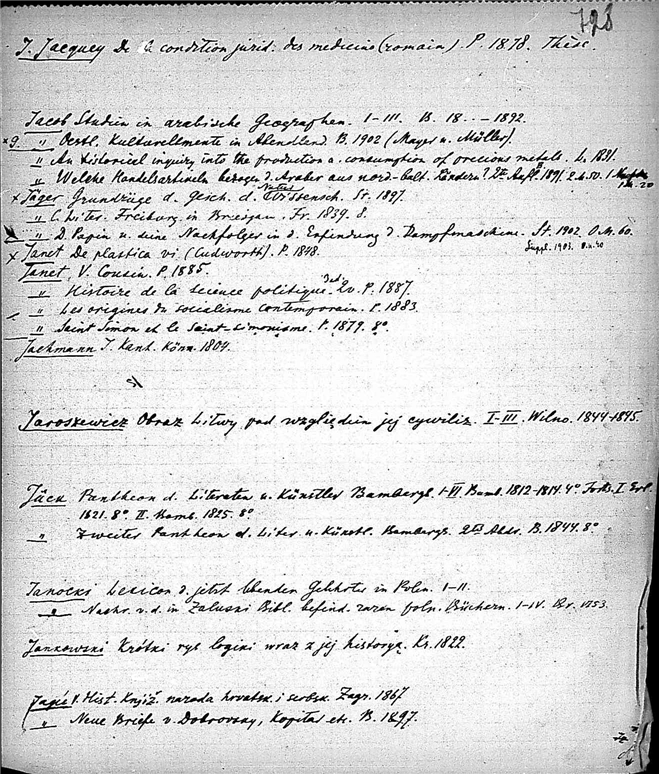 798
J. Jacquey De la condition jurid. des medecins (romain). P. 1878. Thèse.
Jacob Studien in arabische Geographen. I–III. B. 18.. – 1892.
×9. " Oestl. Kulturelemente in Abendland. B. 1902 (Mayer u. Müller).
" An historical inquiry into the production a. consumption of precious metals. L. 1831.
" Welche Handelsartikeln bezogen d. Araber aus nord-balt. Ländern? 2te Aufl. B. 1891. 2.M.50.
1 M. 20
× Jäger Grundzüge d. Gesch. d. Naturwissensch. St. 1897.
" C. Liter. Freiburg in Breisgau. Fr. 1839. 8.
" D. Papin u. seine Nachfolger in d. Erfindung d. Dampfmaschine. St. 1902. 0.M.60.
Suppl. 1903. 0.M.40
× Janet De plastica vi (Cudworth). P. 1848.
Janet, V. Cousin. P. 1885.
" Histoire de la science politique. 3 ed. 2 v. P. 1887.
" Les origines du socialisme contemporain. P. 1883.
" Saint Simon et le Saint-simonisme. P. 1879. 8º.
Jachmann I. Kant. Könn. 1804.
Jaroszewicz Obraz Litwy pod względem jej cywiliz. I–III. Wilno. 1844–1845.
Jäck Pantheon d. Literaten u. Künstler Bambergs. I–VI. Bamb. 1812–1814. 4º. Forts. I. Erl.
1821. 8º. II. Bamb. 1825. 8º
" Zweiter Pantheon d. Liter. u. Künstl. Bambergs. 2te Abdr. B. 1844. 8º.
Janocki Lexicon d. jetzt lebenden Gelehrten in Polen. I–II.
" Nachr. v. d. in Zaluski Bibl. befind. raren poln. Büchern. I–IV. Br. 1753.
Jankowski Krótki rys logiki wraz z jej historyą. Kr. 1822.
Jagić V. Hist. Kniž. naroda hrvatsk. i serbsk. Zagr. 1867
" Neue Briefe v. Dobrovsky, Kopitar etc. B. 1897.